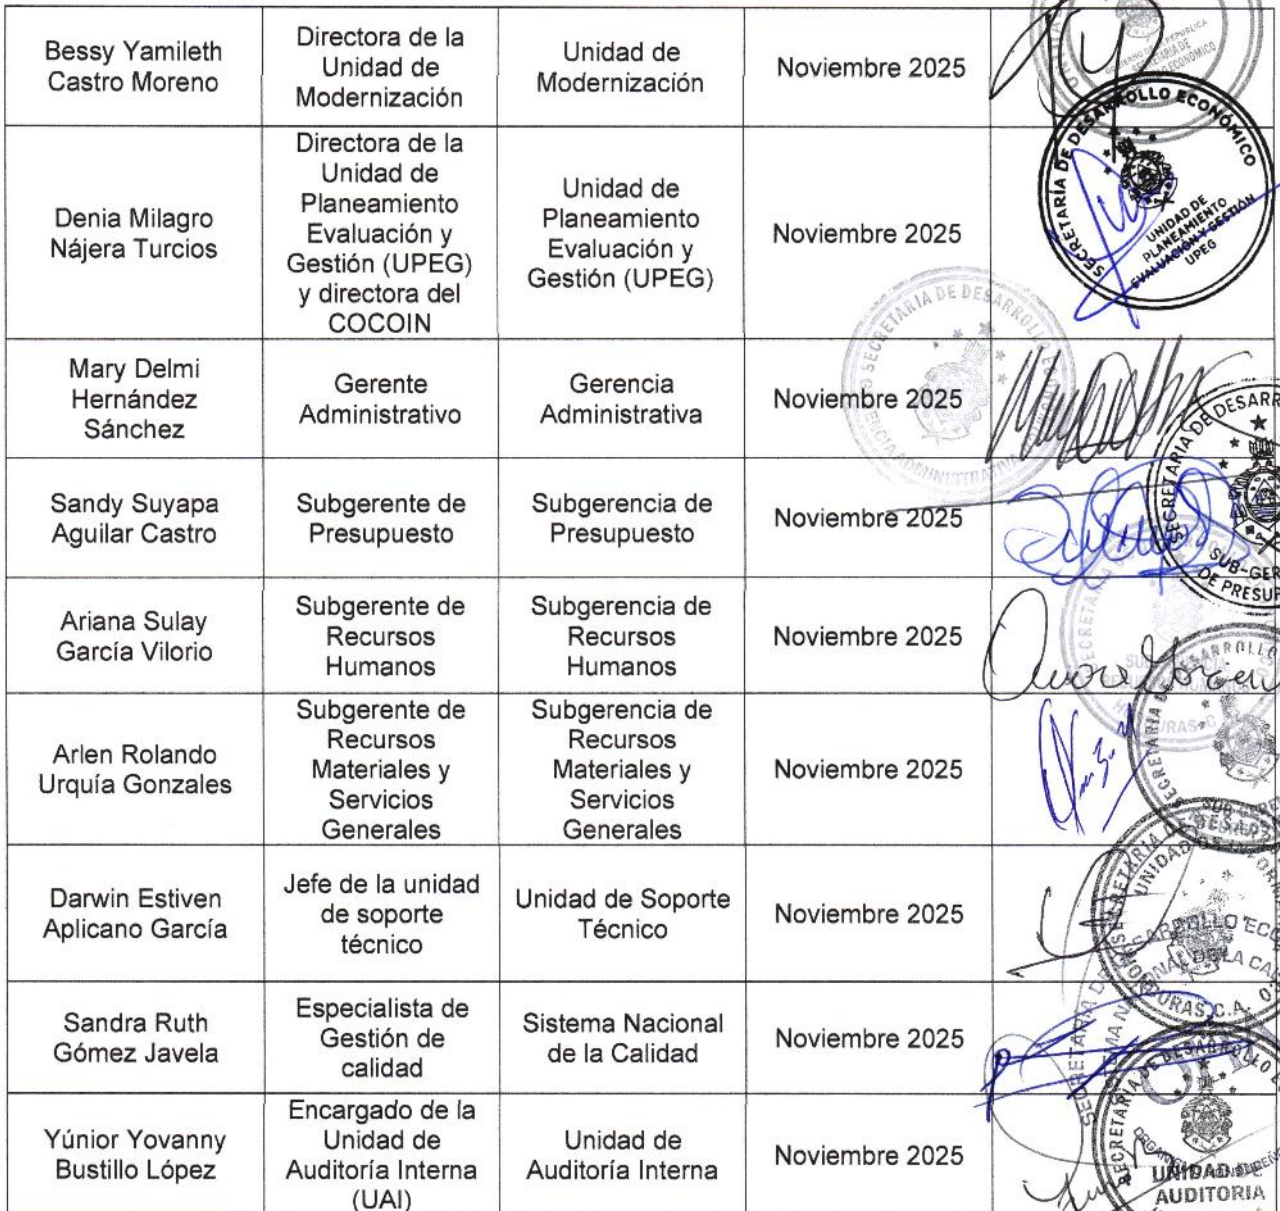 Bessy Yamileth
Castro Moreno
Directora de la
Unidad de
Modernización
Unidad de
Modernización
Noviembre 2025
SECRETARÍA DE DESARROLLO ECONÓMICO
UNIDAD DE
PLANEAMIENTO
EVALUACIÓN Y GESTIÓN
UPEG
Denia Milagro
Nájera Turcios
Directora de la
Unidad de
Planeamiento
Evaluación y
Gestión (UPEG)
y directora del
COCOIN
Unidad de
Planeamiento
Evaluación y
Gestión (UPEG)
Noviembre 2025
Mary Delmi
Hernández
Sánchez
Gerente
Administrativo
Gerencia
Administrativa
Noviembre 2025
Sandy Suyapa
Aguilar Castro
Subgerente de
Presupuesto
Subgerencia de
Presupuesto
Noviembre 2025
Ariana Sulay
García Vilorio
Subgerente de
Recursos
Humanos
Subgerencia de
Recursos
Humanos
Noviembre 2025
Arlen Rolando
Urquía Gonzales
Subgerente de
Recursos
Materiales y
Servicios
Generales
Subgerencia de
Recursos
Materiales y
Servicios
Generales
Noviembre 2025
Darwin Estiven
Aplicano García
Jefe de la unidad
de soporte
técnico
Unidad de Soporte
Técnico
Noviembre 2025
Sandra Ruth
Gómez Javela
Especialista de
Gestión de
calidad
Sistema Nacional
de la Calidad
Noviembre 2025
Yúnior Yovanny
Bustillo López
Encargado de la
Unidad de
Auditoría Interna
(UAI)
Unidad de
Auditoría Interna
Noviembre 2025
UNIDAD DE
AUDITORIA